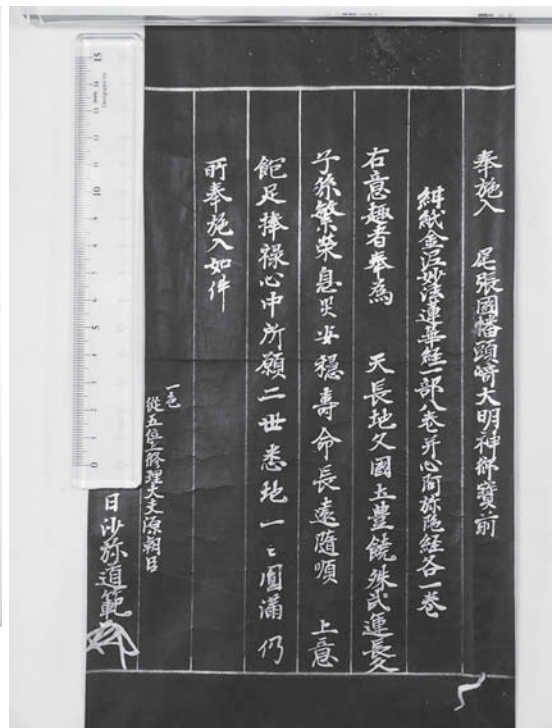 奉施入　尾張國幡頭﨑大明神御寳前
紺紙金泥妙法蓮華経一部八巻并心阿弥陀経各一巻
右意趣者奉為　天長地久國土豊饒殊武運長久
子孫繁榮息災安穏壽命長遠随順　上意
飽足捧禄心中所願二世悉地一々圓満仍
所奉施入如件
一色
従五位上修理大夫源朝臣
日沙弥道範
15
10
5
0